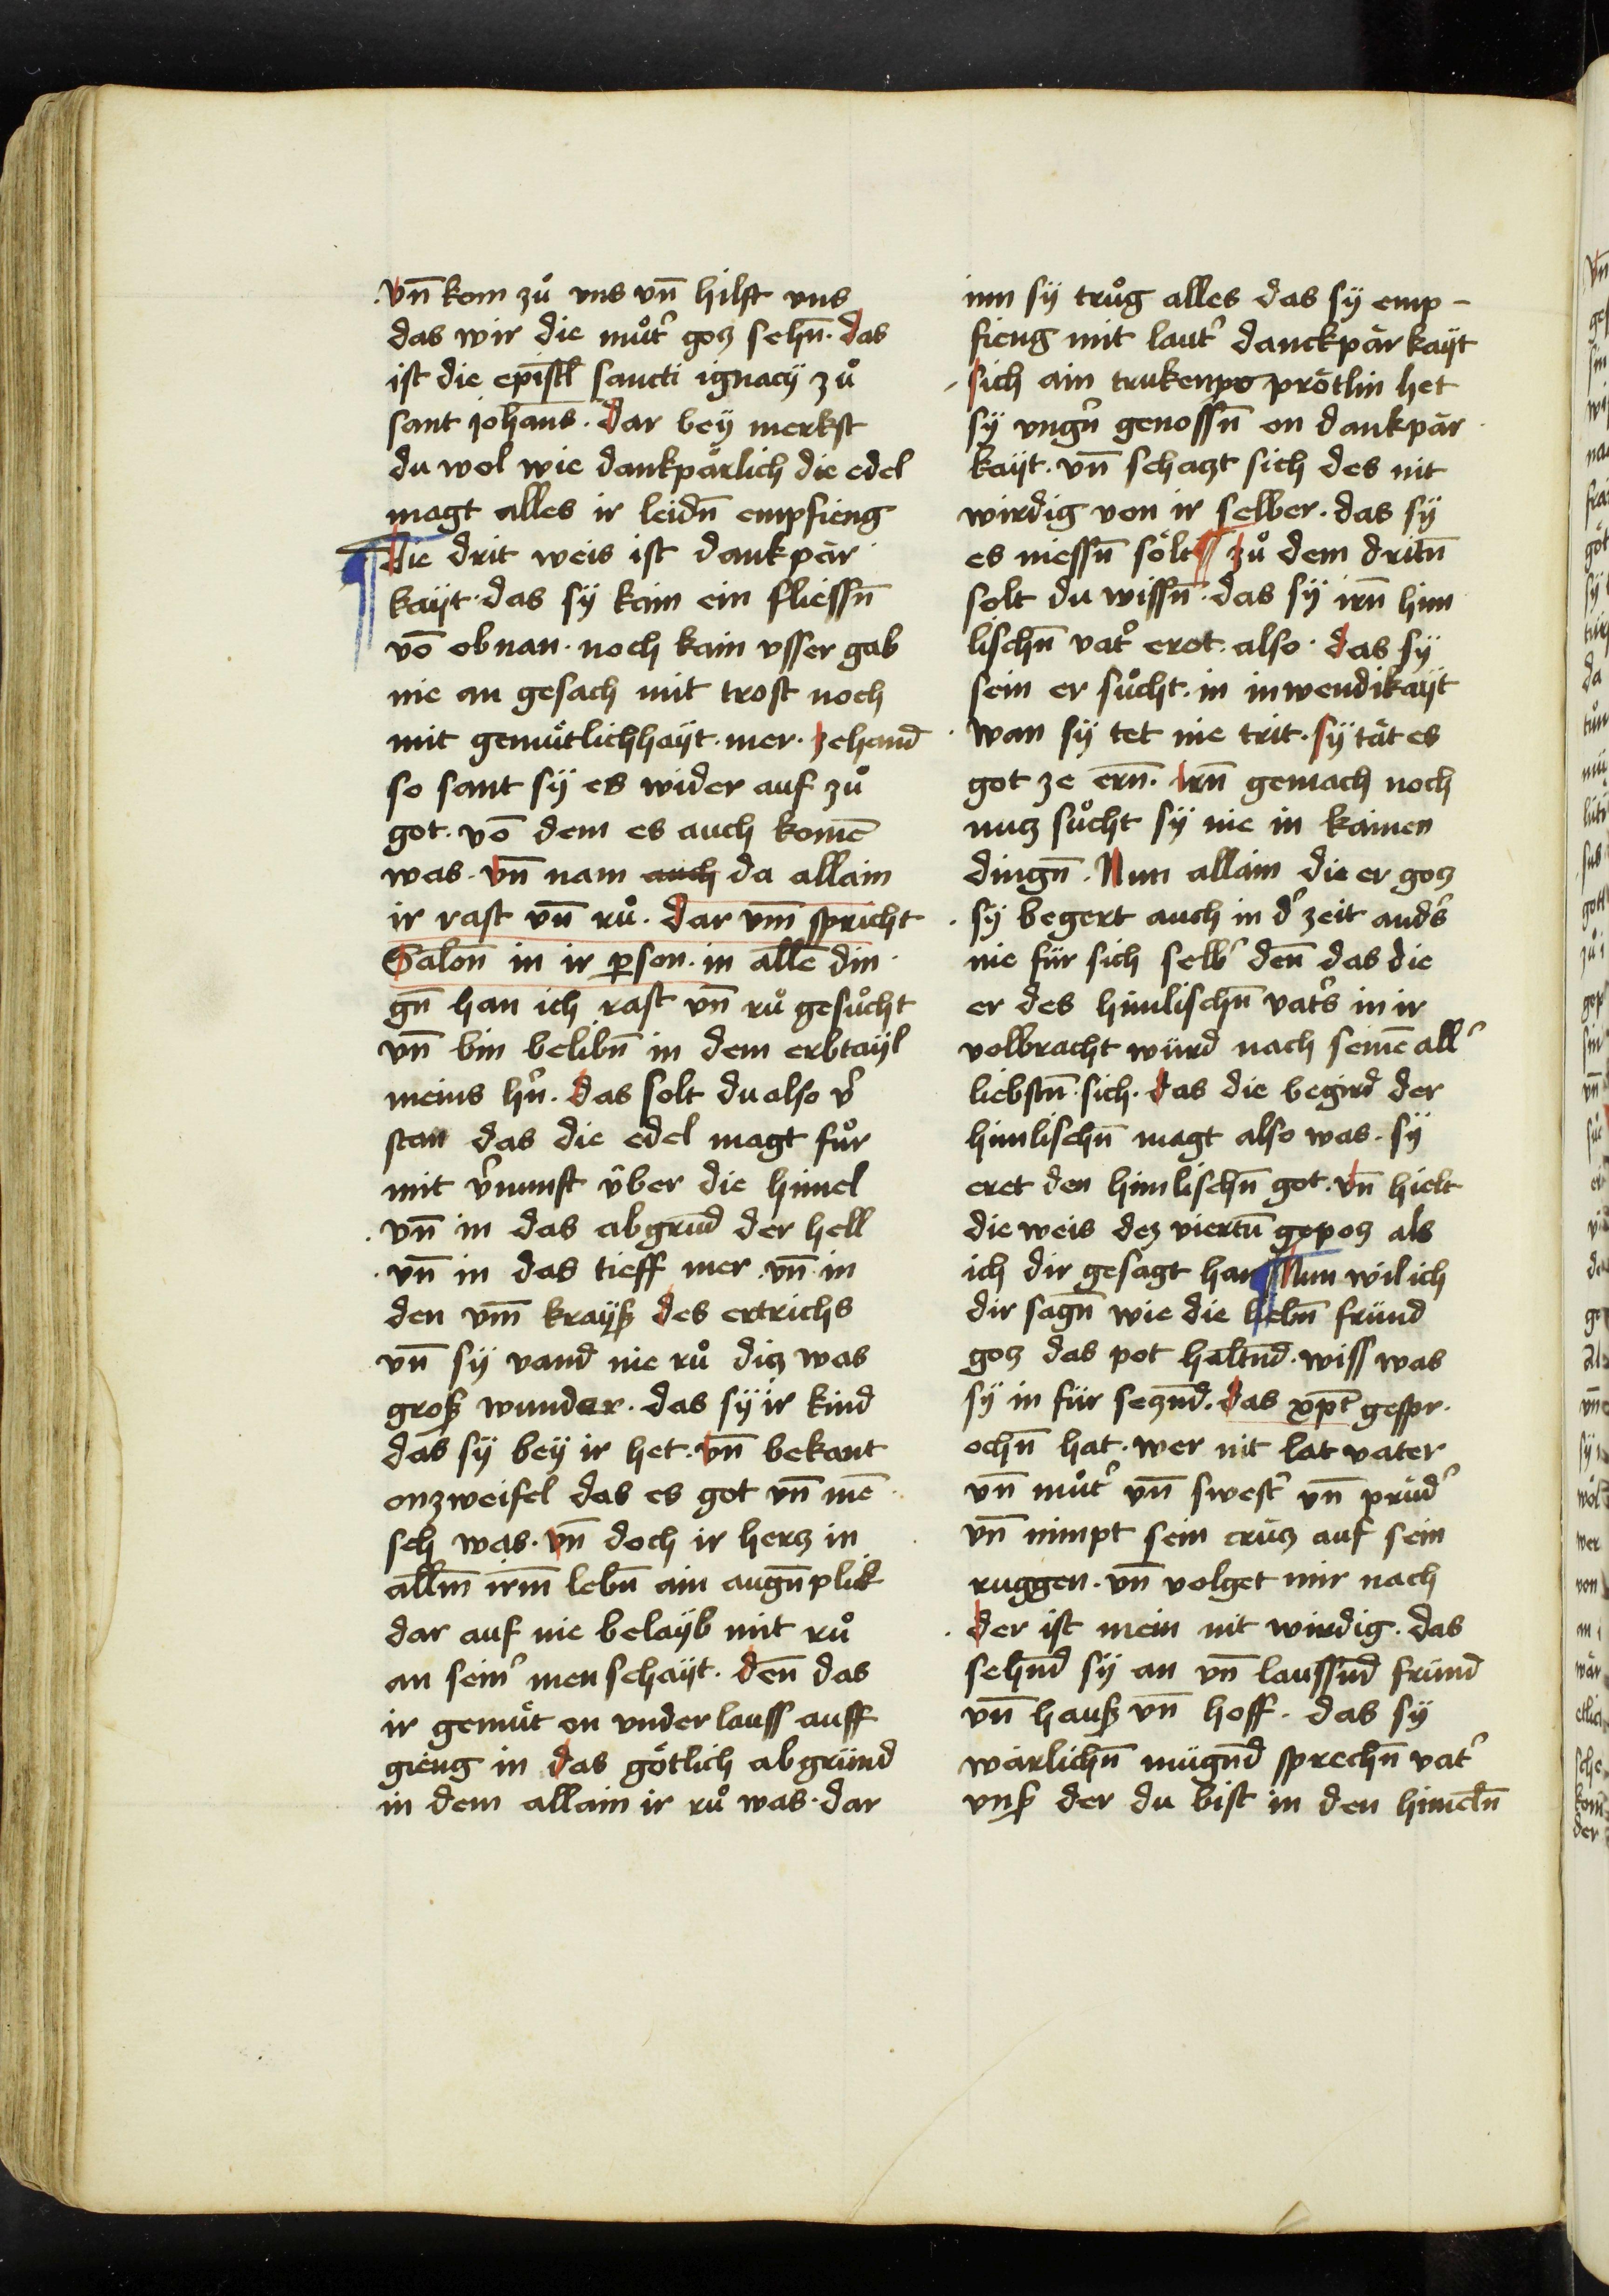 vn̄ kom zů vns vn̄ hilft vns
das wir die můt᷑ gotz sehn̄. das
ist die epistl̄ sancti ignacÿ zů
sant johan̄s. dar beÿ merkst
du wol wie dankpärlich die edel
magt alles ir leidn̄ empfieng
Die drit weis ist dankpär
kaÿt. das sÿ kain ein fliessn̄
vō obnan. noch kain vsser gab
nie an gesach mit trost noch
mit gemütlichhaÿt. mer. zehand
so sant sÿ es wider auf zů
got. vō dem es auch komē
was. vn̄ nam auch da allain
ir rast vn̄ rů. Dar vm̄ spricht
Salon̄ in ir ꝑson. in allē din
gn̄ han ich rast vn̄ rů gesůcht
vn̄ bin belibn̄ in dem erbtaÿl
meins hn᷑. das solt du also v᷑
stan das die edel magt fůr
mit v᷑nunft v̈ber die himel
vn̄ in das abgrund der hell
vn̄ in das tieff mer. vn̄ in
den vm̄ kraÿß des ertrichs
vn̄ sÿ vand nie rů ditz was
groß wunder. das sÿ ir kind
das sÿ beÿ ir het. vn̄ bekant
onzweifel das es got vn̄ mē
sch was. vn̄ doch ir hertz in
allm̄ irm̄ lebn̄ ain augn̄plik
dar auf nie belaÿb mit rů
an sein᷑ menschaÿt. den̄ das
ir gemüt on vnderlauss auff
gieng in das götlich abgründ
in dem allain ir rů was. dar
inn sÿ trůg alles das sÿ emp-
fieng mit laut᷑ danckpärkaÿt
sich ain truken prötlin het
sÿ vngn᷑ genossn̄ on dankpär
kaÿt. vn̄ schatzt sich des nit
wirdig von ir selber. das sÿ
es niessn̄ sölt ¶ zů dem dritn̄
solt du wissn̄. das sÿ irn̄ him
lischn̄ vat᷑ erot. also. das sÿ
sein er sůcht. in inwendikaÿt
wan sÿ tet nie trit. sÿ tät es
got ze ern̄. irn̄ gemach noch
nutz sůcht sÿ nie in kainen
dingn̄. Nun allain die er gotz
sÿ begert auch in d᷑ zeit and᷑s
nie für sich selb᷑ den̄ das die
er des himlischn̄ vat᷑s in ir
volbracht würd nach seinē all᷑
liebstn̄ sich. das die begird der
himlischn̄ magt also was. sÿ
eret den himlischn̄ got. vn̄ hielt
die weis dez viertn̄ gepotz als
ich dir gesagt han ¶ Nun wil ich
dir sagn̄ wie die liebn̄ fründ
gotz das pot haltn̄d. wiss was
sÿ in für setzn̄d. das xp̄t gespr
ochn̄ hat. wer nit lat vater
vn̄ můt᷑ vn̄ swest᷑ vn̄ prüd᷑
vn̄ nimpt sein crütz auf sein
ruggen. vn̄ volget mir nach
der ist mein nit wirdig. das
sehn̄d sÿ an vn̄ laussn̄d fründ
vn̄ hauß vn̄ hoff. das sÿ
wärlichn̄ mügn̄d sprechn̄ vat᷑
vnß der du bist in den himeln̄